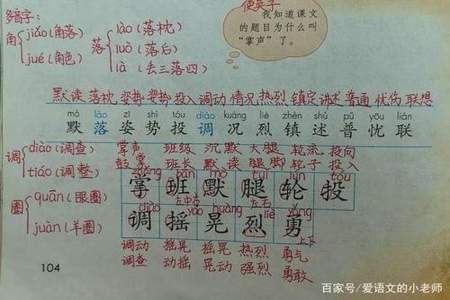 使英子
多音字:
我知道课文
的题目为什么叫
“掌声”了。
角 jiǎo(角落) jué(角色)
落 lào(落枕) luò(落后) là(丢三落四)
默读 落枕 姿势 姿势 投入 调动 情况 热烈 镇定 讲述 普通 忧伤 联想
mò lào zī shì tóu diào kuàng liè zhèn shù pǔ yōu lián
默 落 姿 势 投 调 况 烈 镇 述 普 忧 联
调 diào(调查) tiáo(调整)
掌声 班级 沉默 大腿 轮流 投向
鼓掌 班长 默读 腿脚 轮子 投入
zhǎng bān mò tuǐ lún tóu
掌 班 默 腿 轮 投
圈 quān(眼圈) juàn(羊圈)
左中右 左右
diào yáo huàng liè yǒng
调 摇 晃 烈 勇
上下
调动 摇晃 摇晃 热烈 勇气
调查 动摇 晃动 强烈 勇敢
104
百家号/爱语文的小老师